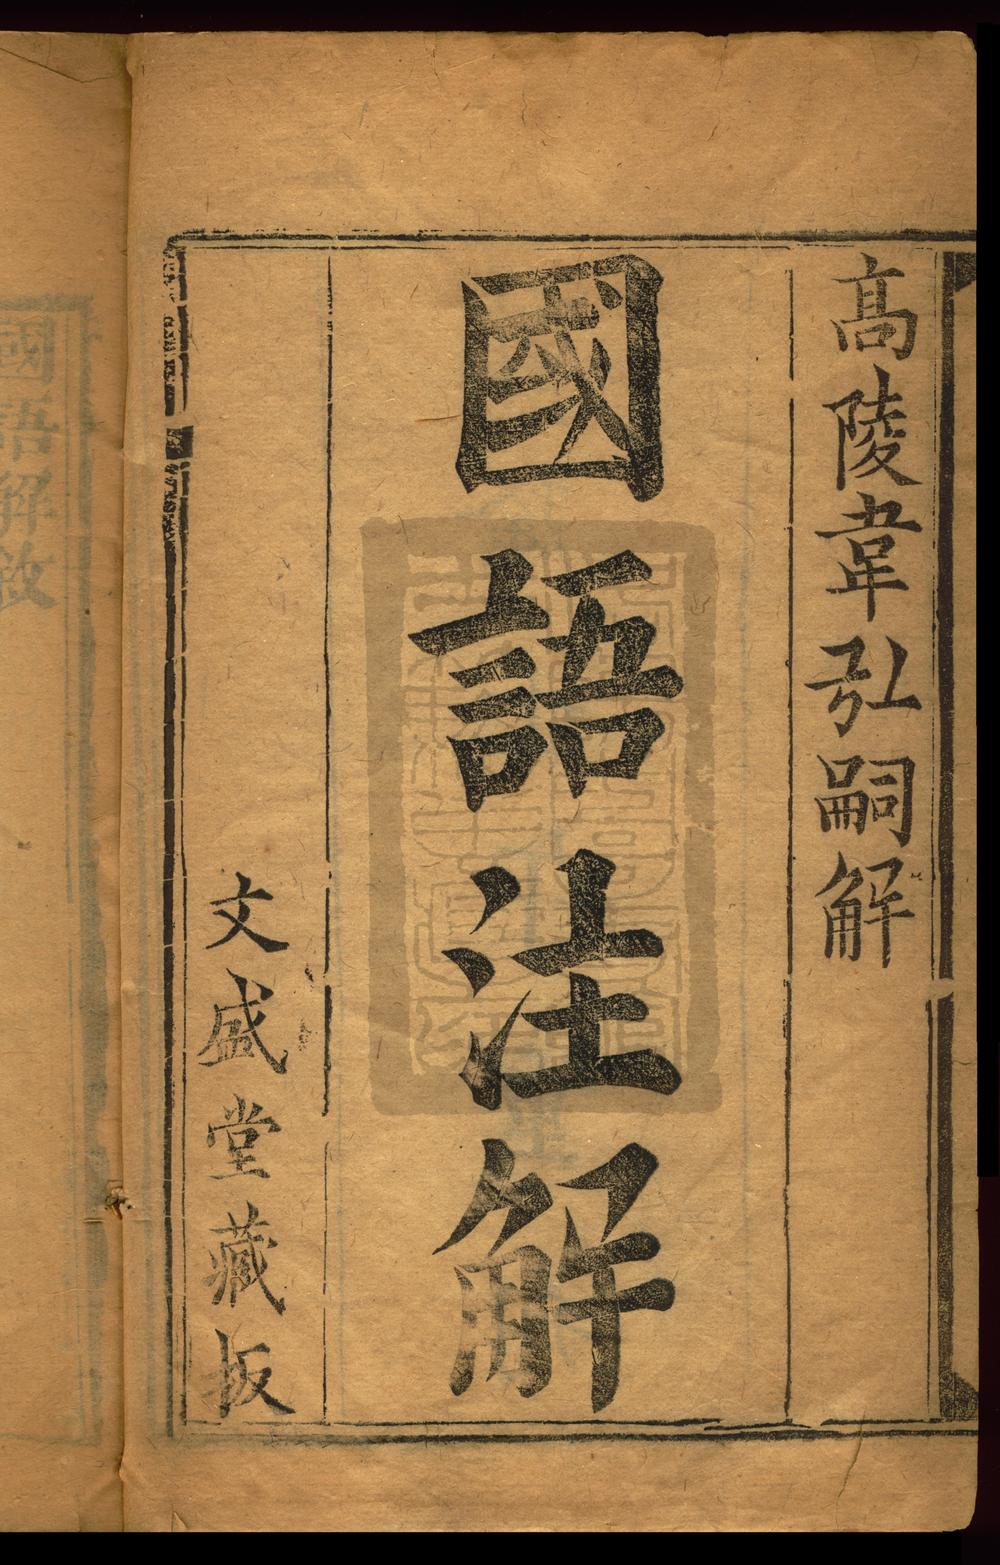 高陵韋弘嗣解
國語注解
文盛堂藏板
國語解敘